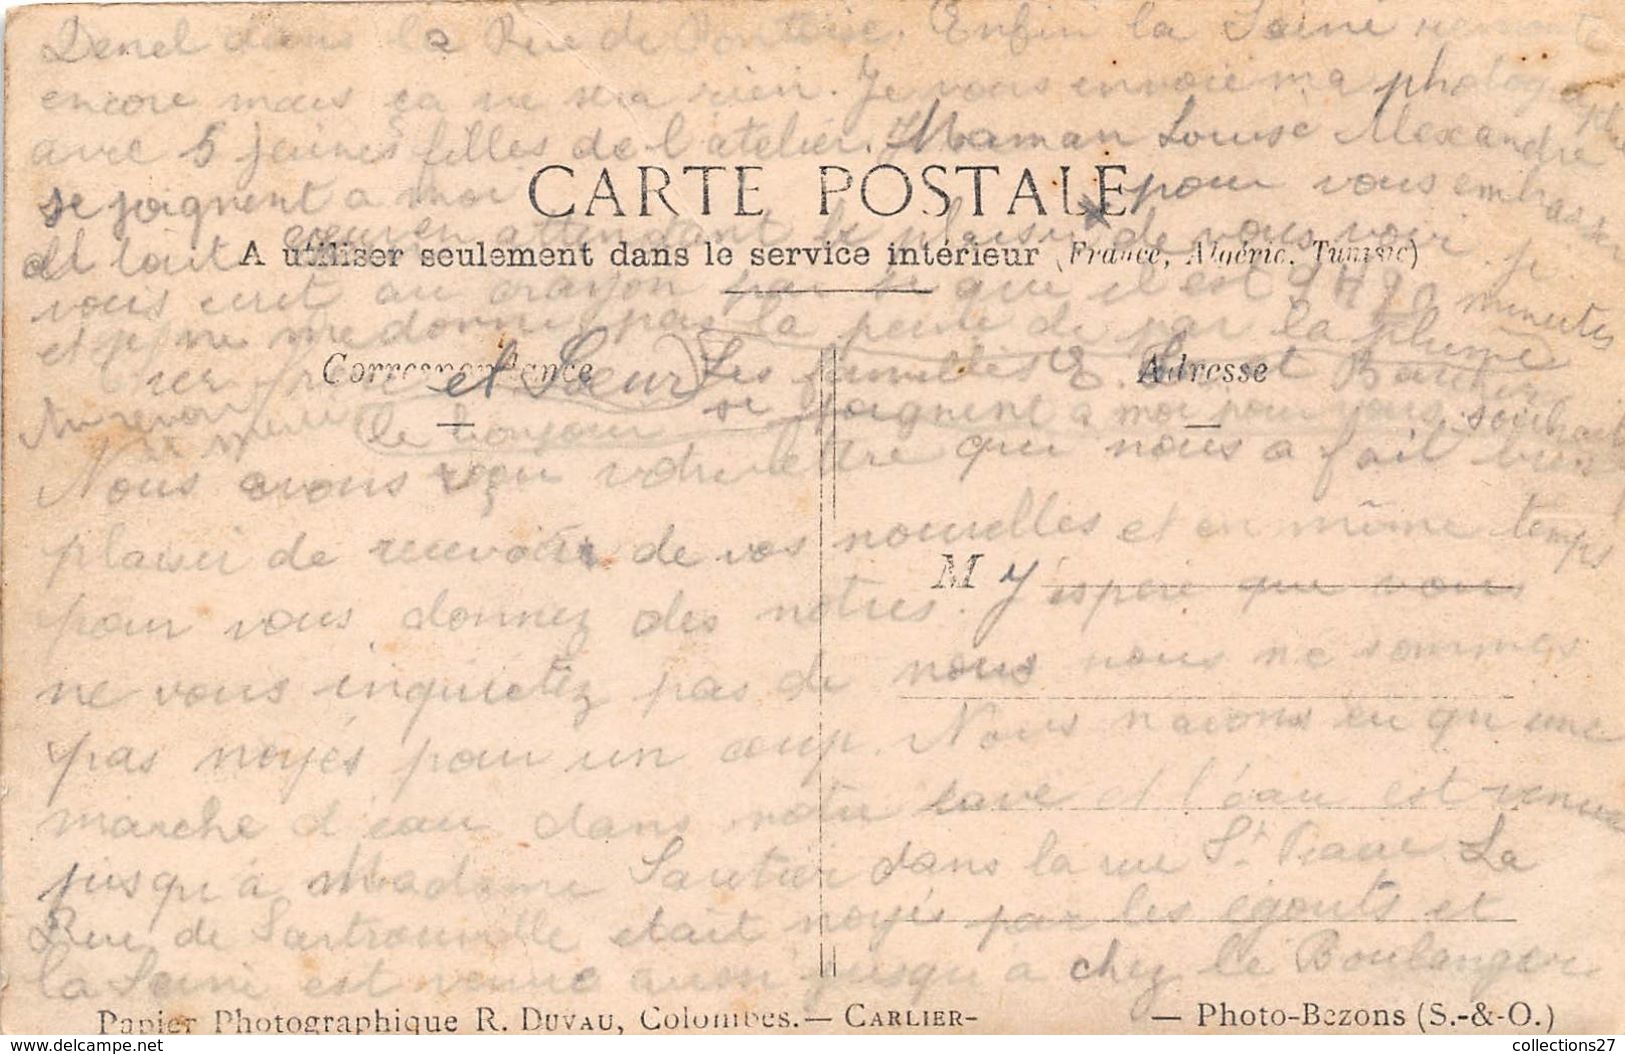 Denel dans la Rue de Pontoise. Enfin la Seine remonte
encore mais ça ne sera rien. Je vous envoie ma photographie
avec 5 jeunes filles de l'atelier. Maman Louise Alexandre
se joignent a moi pour vous embrasser
CARTE POSTALE
de tout cœur en attendant le plaisir de vous voir. Je
A utiliser seulement dans le service intérieur (France, Algérie, Tunisie)
vous ecrit au crayon par ce que il est 9 H 20 minutes
et je ne me donne pas la peine de par la plume
Correspondance
Adresse
Cher frère et Sœur
Les familles E. et
Au revoir
se joignent a moi pour vous souhait
le bonjour
Nous avons reçu votre lettre qui nous a fait bien
plaisir de recevoir de vos nouvelles et en même temps
pour vous donnez des notres. J'espère que vous
M
ne vous inquietez pas de nous nous ne sommes
pas noyés pour un coup. Nous navons eu qu une
marche d'eau dans notre cave et l'eau est venue
jusqu'à Madame Sautier dans la rue St. La
Rue de Sartrouville etait noyés par les égouts et
la Seine est venue aussi jusqu a chez le Boulanger
Papier Photographique R. DUVAU, Colombes. — CARLIER- — Photo-Bezons (S.-&-O.)
collections27